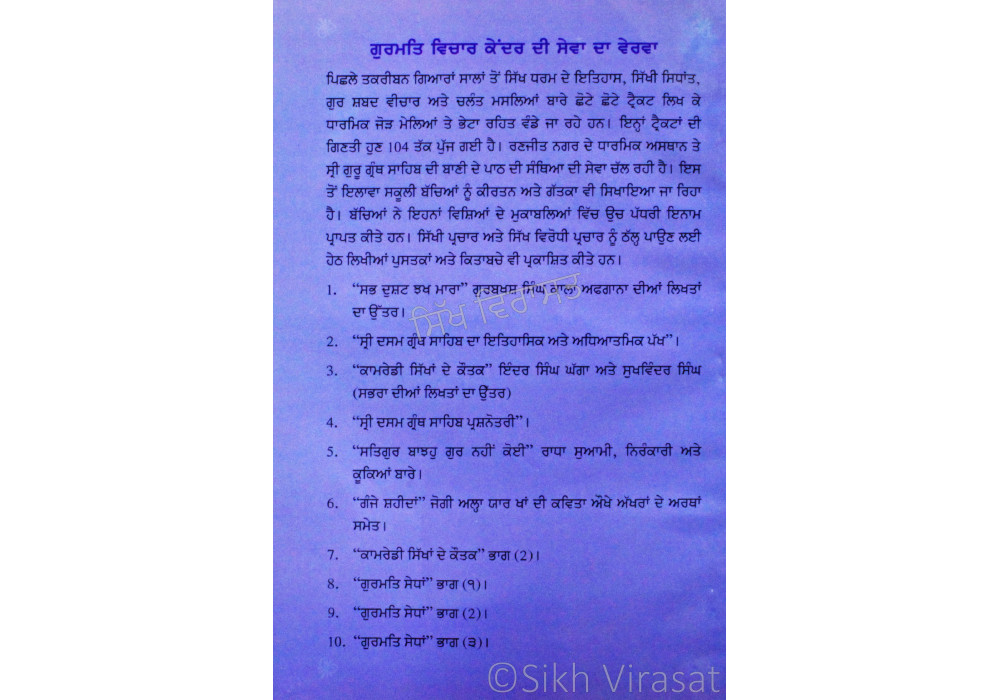 ਗੁਰਮਤਿ ਵਿਚਾਰ ਕੇਂਦਰ ਦੀ ਸੇਵਾ ਦਾ ਵੇਰਵਾ
ਪਿਛਲੇ ਤਕਰੀਬਨ ਗਿਆਰਾਂ ਸਾਲਾਂ ਤੋਂ ਸਿੱਖ ਧਰਮ ਦੇ ਇਤਿਹਾਸ, ਸਿੱਖੀ ਸਿਧਾਂਤ,
ਗੁਰ ਸ਼ਬਦ ਵੀਚਾਰ ਅਤੇ ਚਲੰਤ ਮਸਲਿਆਂ ਬਾਰੇ ਛੋਟੇ ਛੋਟੇ ਟ੍ਰੈਕਟ ਲਿਖ ਕੇ
ਧਾਰਮਿਕ ਜੋੜ ਮੇਲਿਆਂ ਤੇ ਭੇਟਾ ਰਹਿਤ ਵੰਡੇ ਜਾ ਰਹੇ ਹਨ। ਇਨ੍ਹਾਂ ਟ੍ਰੈਕਟਾਂ ਦੀ
ਗਿਣਤੀ ਹੁਣ 104 ਤੱਕ ਪੁੱਜ ਗਈ ਹੈ। ਰਣਜੀਤ ਨਗਰ ਦੇ ਧਾਰਮਿਕ ਅਸਥਾਨ ਤੇ
ਸ੍ਰੀ ਗੁਰੂ ਗ੍ਰੰਥ ਸਾਹਿਬ ਦੀ ਬਾਣੀ ਦੇ ਪਾਠ ਦੀ ਸੰਥਿਆ ਦੀ ਸੇਵਾ ਚੱਲ ਰਹੀ ਹੈ। ਇਸ
ਤੋਂ ਇਲਾਵਾ ਸਕੂਲੀ ਬੱਚਿਆਂ ਨੂੰ ਕੀਰਤਨ ਅਤੇ ਗੱਤਕਾ ਵੀ ਸਿਖਾਇਆ ਜਾ ਰਿਹਾ
ਹੈ। ਬੱਚਿਆਂ ਨੇ ਇਹਨਾਂ ਵਿਸ਼ਿਆਂ ਦੇ ਮੁਕਾਬਲਿਆਂ ਵਿੱਚ ਉਚ ਪੱਧਰੀ ਇਨਾਮ
ਪ੍ਰਾਪਤ ਕੀਤੇ ਹਨ। ਸਿੱਖੀ ਪ੍ਰਚਾਰ ਅਤੇ ਸਿੱਖ ਵਿਰੋਧੀ ਪ੍ਰਚਾਰ ਨੂੰ ਠੱਲ੍ਹ ਪਾਉਣ ਲਈ
ਹੇਠ ਲਿਖੀਆਂ ਪੁਸਤਕਾਂ ਅਤੇ ਕਿਤਾਬਚੇ ਵੀ ਪ੍ਰਕਾਸ਼ਿਤ ਕੀਤੇ ਹਨ।
1. “ਸਭ ਦੁਸ਼ਟ ਝਖ ਮਾਰਾ” ਗੁਰਬਖਸ਼ ਸਿੰਘ ਕਾਲਾ ਅਫਗਾਨਾ ਦੀਆਂ ਲਿਖਤਾਂ
ਦਾ ਉੱਤਰ।
2. “ਸ੍ਰੀ ਦਸਮ ਗ੍ਰੰਥ ਸਾਹਿਬ ਦਾ ਇਤਿਹਾਸਿਕ ਅਤੇ ਅਧਿਆਤਮਿਕ ਪੱਖ”।
3. “ਕਾਮਰੇਡੀ ਸਿੱਖਾਂ ਦੇ ਕੌਤਕ” ਇੰਦਰ ਸਿੰਘ ਘੱਗਾ ਅਤੇ ਸੁਖਵਿੰਦਰ ਸਿੰਘ
(ਸਭਰਾ ਦੀਆਂ ਲਿਖਤਾਂ ਦਾ ਉੱਤਰ)
4. “ਸ੍ਰੀ ਦਸਮ ਗ੍ਰੰਥ ਸਾਹਿਬ ਪ੍ਰਸ਼ਨੋਤਰੀ”।
5. “ਸਤਿਗੁਰ ਬਾਝਹੁ ਗੁਰ ਨਹੀਂ ਕੋਈ” ਰਾਧਾ ਸੁਆਮੀ, ਨਿਰੰਕਾਰੀ ਅਤੇ
ਕੂਕਿਆਂ ਬਾਰੇ।
6. “ਗੰਜੇ ਸ਼ਹੀਦਾਂ” ਜੋਗੀ ਅਲ੍ਹਾ ਯਾਰ ਖਾਂ ਦੀ ਕਵਿਤਾ ਔਖੇ ਅੱਖਰਾਂ ਦੇ ਅਰਥਾਂ
ਸਮੇਤ।
7. “ਕਾਮਰੇਡੀ ਸਿੱਖਾਂ ਦੇ ਕੌਤਕ” ਭਾਗ (2)।
8. “ਗੁਰਮਤਿ ਸੇਧਾਂ” ਭਾਗ (੧)।
9. “ਗੁਰਮਤਿ ਸੇਧਾਂ” ਭਾਗ (2)।
10. “ਗੁਰਮਤਿ ਸੇਧਾਂ” ਭਾਗ (੩)।
ਸਿੱਖ ਵਿਰਾਸਤ
©Sikh Virasat